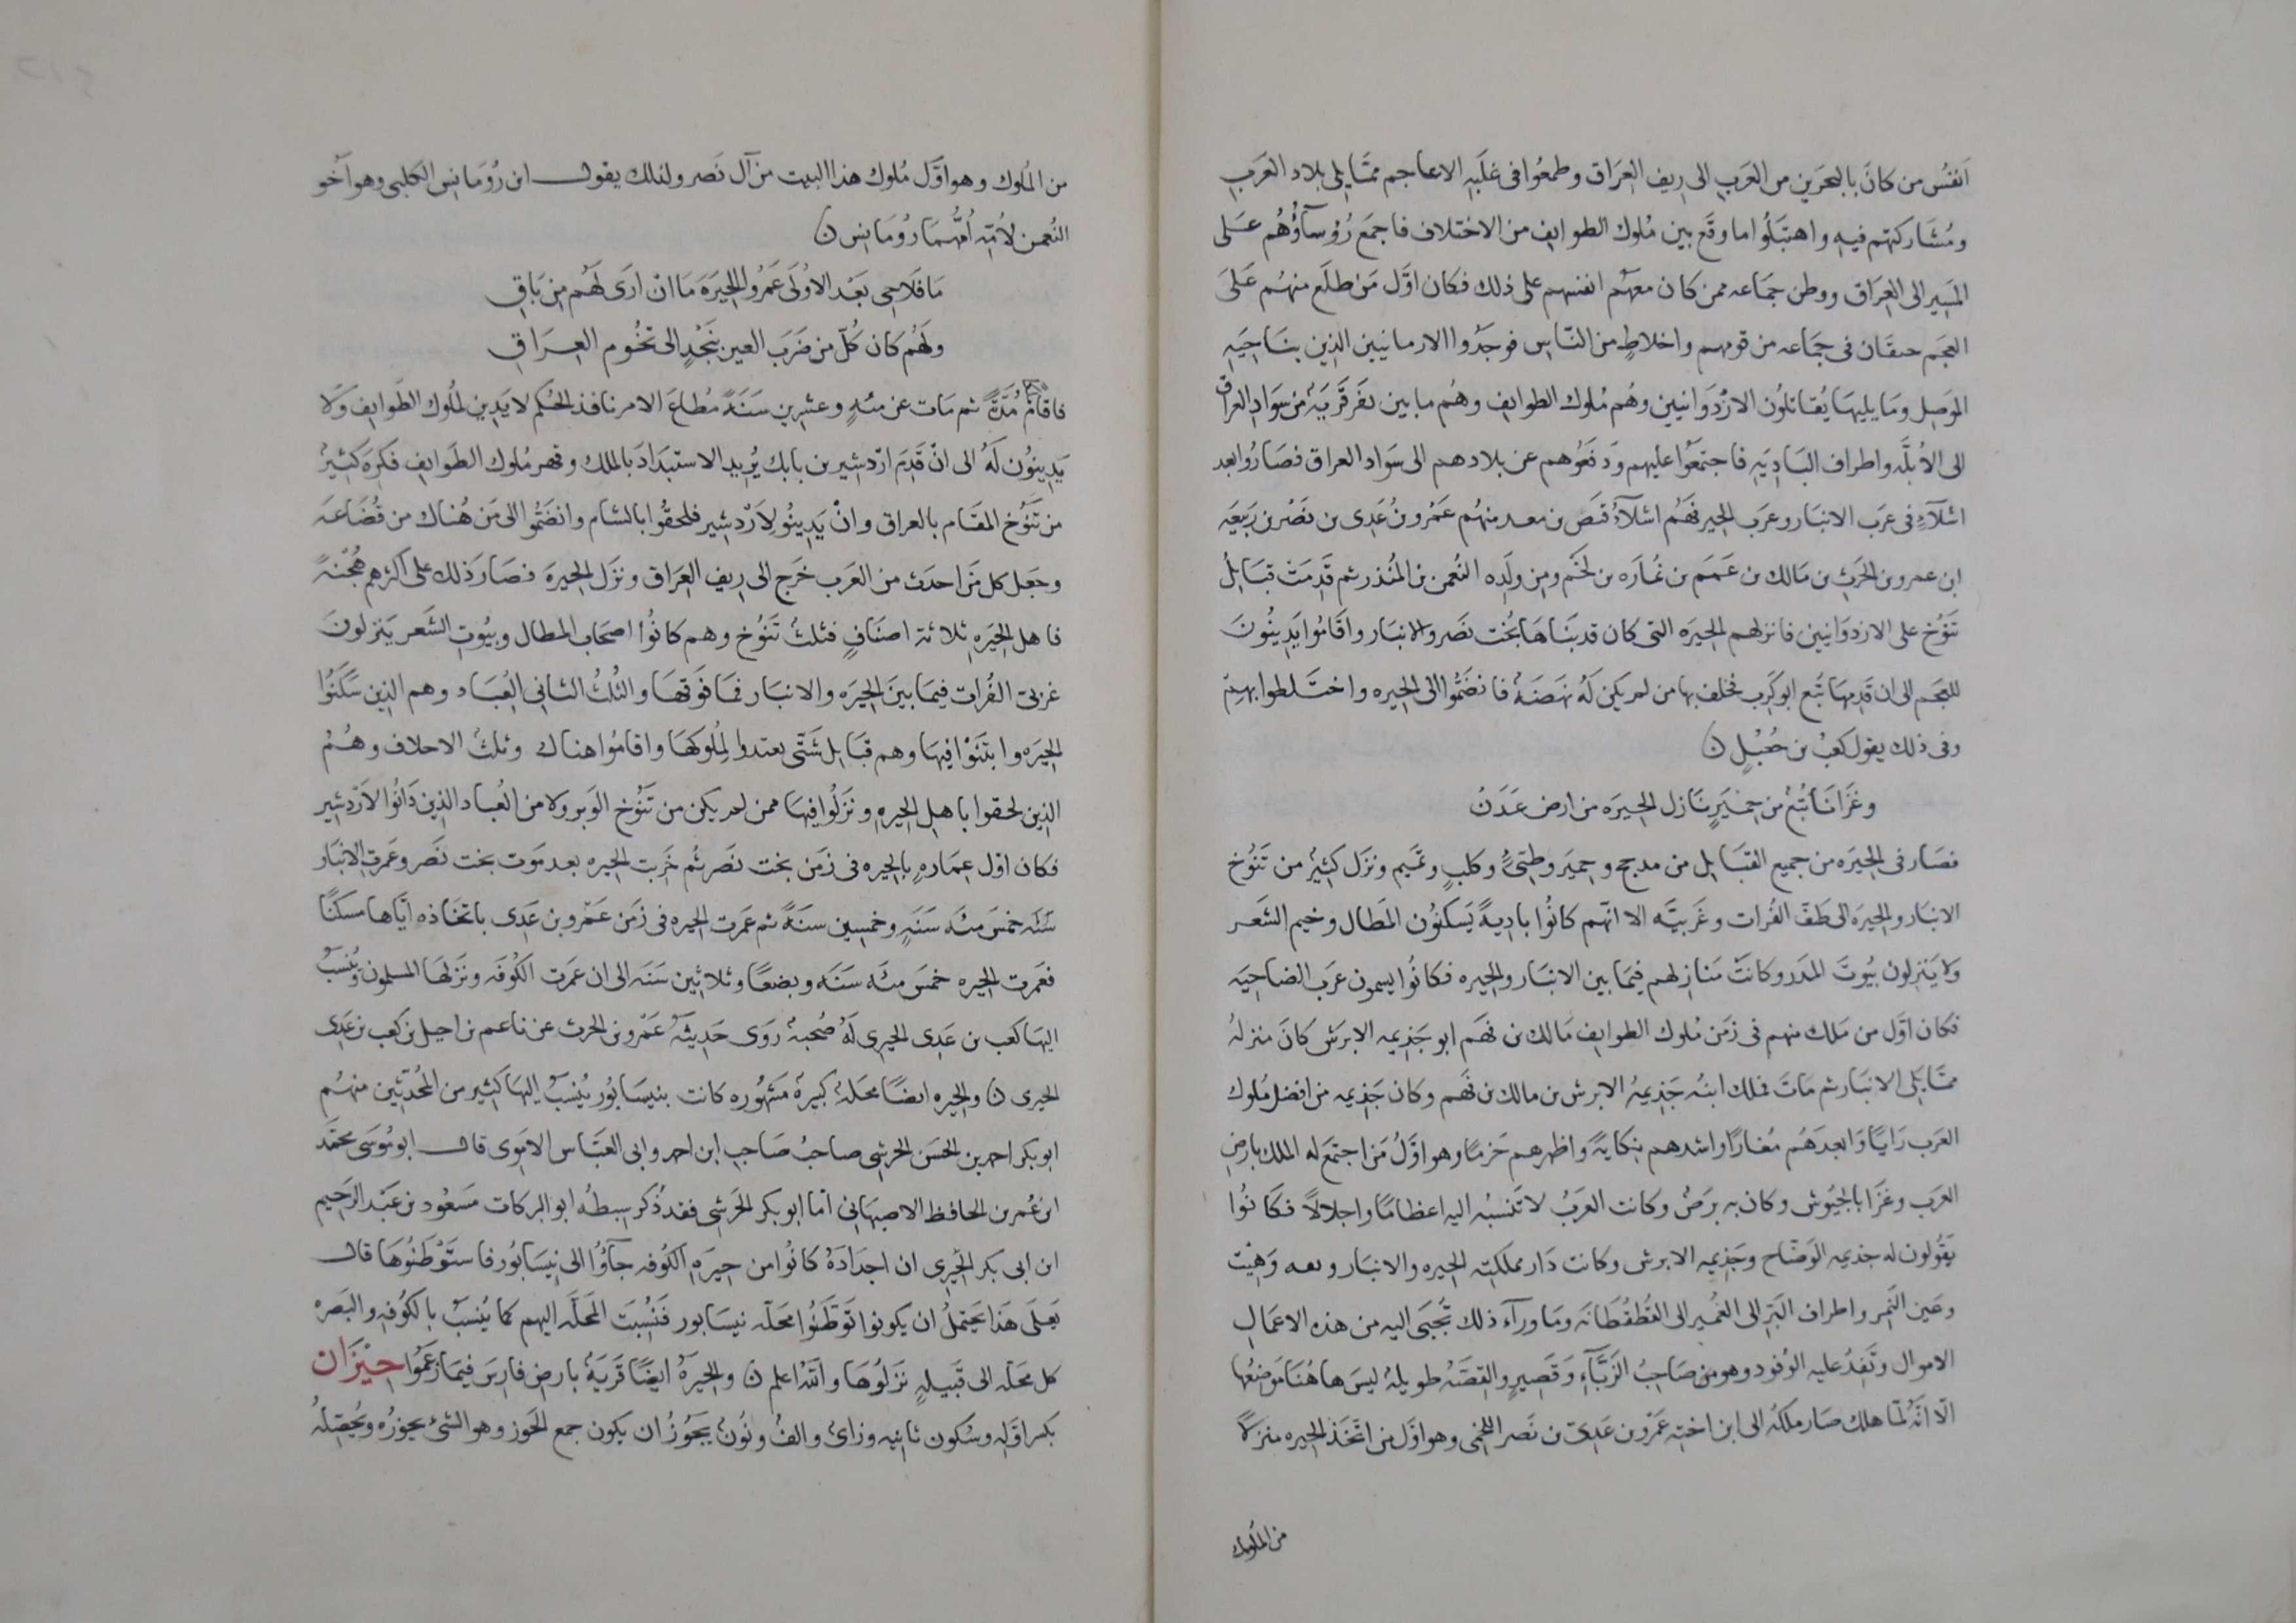 اَنفُس من كانَ بالبحرَين من العَرَب الى ريف العِرَاق وطمعُوا فى غلَبَه الاعاجم ممّا يلى بلاد العَرَب
ومُشاركتهم فيهِ واهتبَلُوا ما وقَع بين مُلوك الطوايف من الاختلاف فاجمعَ رُؤسآؤُهُم عَلى
المَسَير الى العِرَاق ووطن جمَاعه ممن كان معهُم انفسهم على ذلك فكان اوّل مَن طلَع منهُم عَلَى
العجَم حىقَان فى جمَاعه من قومهم واخلاطٍ من النّاس فوجَدُوا الارمانيين الذين بنَاحِيَهِ
الموَصِل ومَا يليهَا يُقَاتلُون الارْدَوَانيين وهُم مُلوك الطوايف وهُم ما بين نفّر قَريَة من سَواد العراق
الى الاُبلَّه واطراف البَادِيَهِ فاجتمَعُوا عليهم وَدفَعُوهم عن بلادهم الى سَوَاد العراق فصَارُوا بعد
اشلآءٍ فى عرَب الانبَار وعرَب الحِير فهُم اشلآءُ قنَص بن معد منهُم عَمُرو نُ عَدِى بن نصْر بن رَبيعَه
ابن عمرو بن الحرَث بن مَالك بن عَمَم بن نُمارَه بن لخَم ومِن ولَدِه النُعمن بن المُنذر ثم قَدِمَت قبَايلُ
تنَوُخ على الازدوَانيين فانزلهم الحيَرَه التى كان قد بنَاهَا بُخت نصَر والانبَار واقَامُوا يَدِينُونَ
للعجَم الى ان قدِمهَا تُبّع ابو كَرِب فخلف بها من لم يكن لَهُ نهضَهُ فانضَمُّوا الى الحيره واختَلطوا بهِمْ
وفى ذلك يقول كعبْ بن جُعَيْلٍ ن
وغَزَانا تُبعُ من حِمْيَرٍ نَازل الحيِرَه من ارض عَدَنْ
فصَار فى الحِيَره من جميع القبَايل من مدبج وحِميَر وطَيّئُ وكلبٍ وتمَيم ونَزَل كثيُر من تَنَوُخ
الانبَار والحِيَرَه الى طَفّ الفُرات وغَربيَّه الا انّهم كانُوا بادِيهً يَسَكنُون المَطال وخيم الشَعر
وَلا يَنزِلون بيُوتَ المدَر وكانَتْ مَنازلهم فيمَا بين الانبَار والحِيره فكَانُوا يسمون عرَب الضاحِيَه
فكان اوّل من مَلك منهم فى زمَن مُلوك الطوايف مَالك بن فهَم ابو جَذِيمه الابرَش كانَ منزلهُ
ممّا يَلى الانبَار ثم مَاتَ فملك ابنُه جَذِيمهُ الابرش بن مالك بن فهَم وكان جَذِيمه من افضل مُلوك
العَرب رَايًا وَابعدَهُم مُغارًا واشدهم نِكايَةً واظهرهم حَزمًا وهو اوّلُ مَن اجتمَع له الملك بارضِ
العرَب وغزَا بالجيُوش وكان به برَصٌ وكانت العَرَبُ لا تَنسبُه اليه اعظامًا واجلالاً فكَانُوا
يَقُولون له جذيمه الوَضّاح وجَذِيمه الابرش وكانت دَار مملكتِه الحِيره والانبَار وىعه وَهِيْت
وعَين التَمر واطراف البَرّ الى الغُمير الى القُطقُطَانَه وما ورآء ذلك تُجبَى اليه من هذه الاعمَالِ
الاموال وتَفِدُ عليه الوُفود وهو من صَاحِبُ الزَبَّآءِ وَقَصِيرٍ والقِصَّهُ طويلهُ ليسَ هاهُنَا مَوضِعُها
الّا انّهُ لمّا هلك صَار ملكهُ الى ابن اختِه عَمْرو بن عَدِىّ بن نَصر اللخمى وهو اوّل من اتّخَذ الحيره منزلاً
من الملُوك
من المُلوك وهو اوَّل مُلوك هذا البيت من آل نَصر ولذلك يقول ابن رُوَمانِس الكلبى وهو اَخُو
النُعمن لاُمّه اُمُّهُمَا رُومَانِس ن
مَا فَلَاحِى بَعْد الاُولَى عَمَرُوا الحِيَرَه مَا انْ ارَى لَهُم مِن بَاقِ
ولَهُم كان كُلّ مَن ضَرَبَ العين بنَجْدٍ الى تخُوم العِرَاقِ
فاقامُ مُدَّةً ثم مَات عن مئهٍ وعشرين سَنَةً مُطاعَ الامر نافذ الحكم لا يَدِين لمُلوك الطَوايف وَلا
يَدِينُون لَهُ الى انْ قَدِمَ ارْدشير بن بابك يُريد الاستبدَادَ بالملك وقهر مُلوك الطَوايف فكَرِهَ كثيرُ
من تَنُوُخ المقَام بالعراق وانْ يَدِينُو لاَرْدشِير فلحقُوا بالشام وانضَمُّوا الى مَن هُناك من قُضَاعَه
وجَعل كل مَن احدَث من العَرب خَرج الى ريف العِرَاق ونزَل الحيِرةَ فصَارَ ذلك على اكثرهم هُجْنَهً
فاهل الحِيَرهِ ثلاثة اصنَافٍ فثلثُ تَنَوُخ وهم كانُوا اصحَاب المطال وبيُوتِ الشَعر يَنزلونَ
غربىّ الفُرات فيمَا بينَ الحِيَرَه والانبَار فمَا فَوَقهَا والثُلثُ الثانى العُبَاد وهم الذين سَكنَوُا
الحِيَره وابتَنَوْا فيهَا وهم قبَايل شَتّى تعبّدوا لِمُلوكهَا واقامُوا هناك وثلثُ الاحلاف وهُمُ
الذين لحقوا باهل الحِيرهِ ونَزَلُوا فيهَا ممن لم يكن من تَنُوخ الوَبر ولا من العُباد الذين دَانُوا لاَرْدشِير
فكان اوّل عِمَارهِ بالحيره فى زمَن بخت نصَر ثُم خَربت الحِيره بعد مَوت بخت نَصر وعَمرت الانبَار
سَنَه خمسَ مئه سَنَةٍ وخمسِين سَنةً ثم عمَرت الحيره فى زمَن عَمْرو بن عَدِى باتخاذه ايّاها مسكَنًا
فعَمَرت الحِيره خمسَ مئه سَنَه وبضعًا وثلاثين سَنَه الى ان عمَرت الكُوفَه ونَزلهَا المسلمون ويُنسَبُ
اليهَا كعب بن عَدِى الحِيرِى لَهُ صُحبهُ رَوَى حَدِيثَهُ عَمْرو بن الحرث عن ناعم بن اجيل بن كعب بن عَدِى
الحيرى ن والحِيره ايضًا محَلهُ كبيرهُ مَشهُوره كانت بنيسَابُور يُنسَبُ اليهَا كثير من المُحدّثين منهُم
ابو بكر احمد بن الحسَن الحرَشى صاحبُ صَاحِب ابن احمد وابى العَبّاس الامَوِى قال ابو مُوسَى محمّد
ابن عُمر بن الحافظ الاصبهَانى امّا ابو بكر الحرَشى فقد ذُكر سِبطُه ابو البركات مَسعُود بن عَبد الرَحِيم
ابن ابى بكر الحَيرِى ان اجدَادَهُ كانُوا من حِيَرهِ الكُوفه جآؤُا الى نيَسَابُور فاستَوْطنُوهَا قال
فعَلى هَذا يَحتِملُ ان يكونوا تَوَطَّنُوا محَلّه نيسَابور فَنُسِبَت المحَلّه اليهم كما يُنسَبُ بالكُوفه والبَصره
كل محَلّه الى قَبيلهٍ نَزَلُوهَا والله اعلم ن والحِيَرهُ ايضًا قريَةُ بارض فارِسَ فيمَا زعَمُوا حِيْزَان
بكسر اوّله وسُكون ثانيه وزاىُ والفُ ونُونُ يَجوُزُ ان يكون جمع الحَوز وهو الشئ يحوزُه ويُحصّلهُ